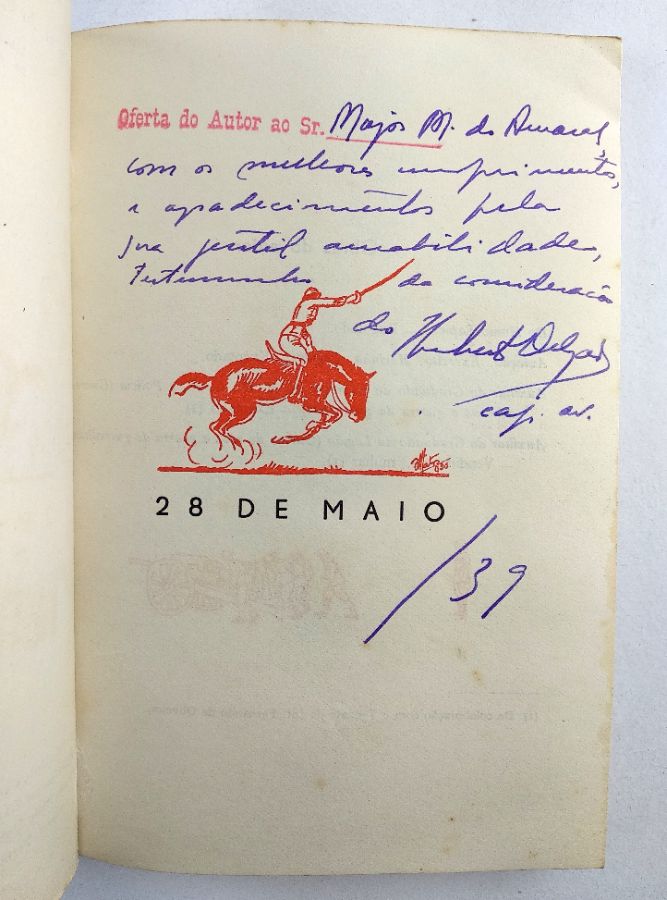 Oferta do Autor ao Sr. Major M. do Amaral,
com os melhores cumprimentos,
e agradecimentos pela
sua gentil amabilidade,
Testemunho da consideração
do Humberto Delgado
cap. av.
28 DE MAIO
/39